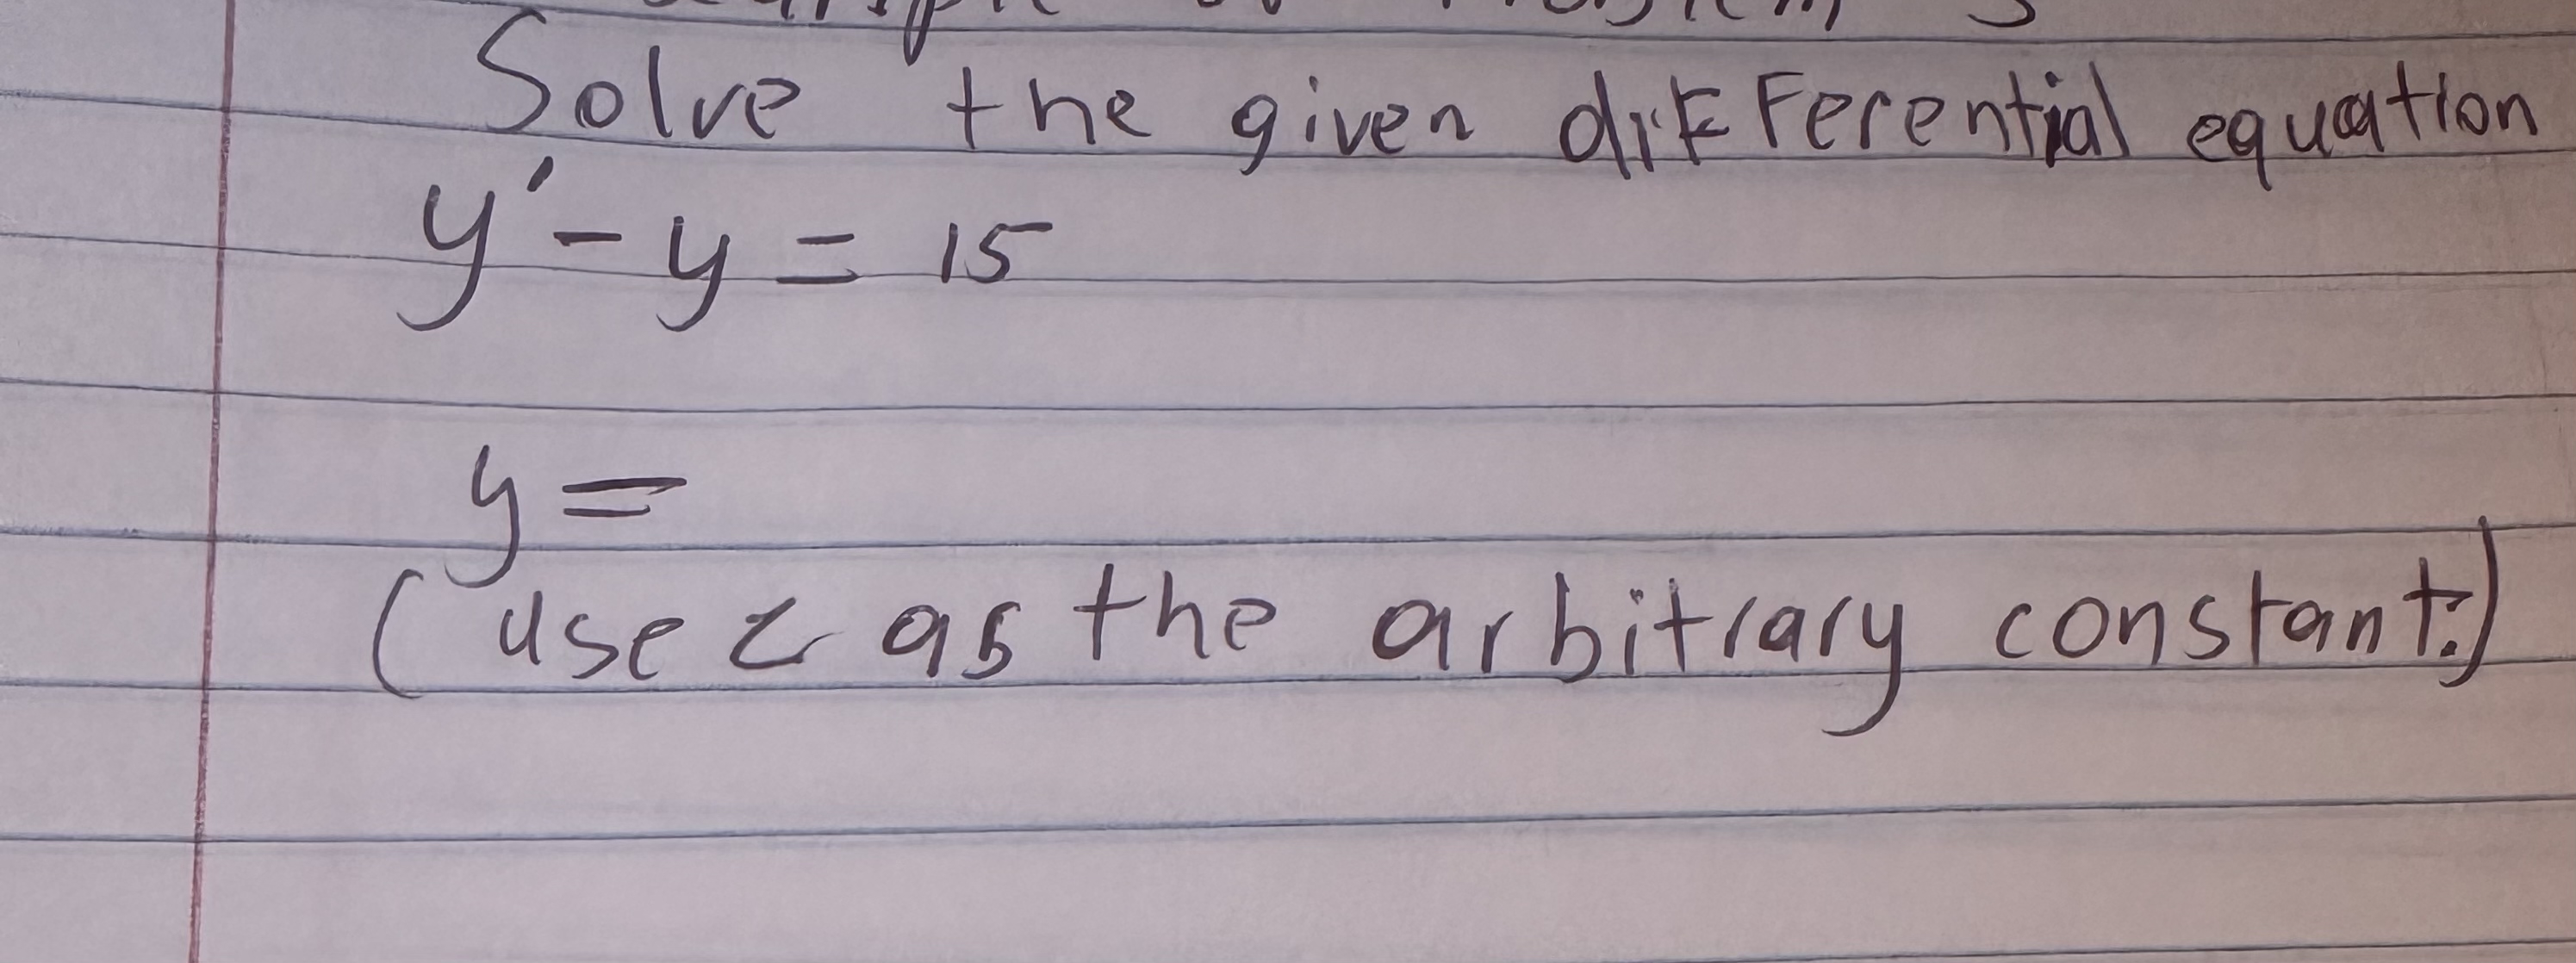 Solve the given differential equation
y' - y = 15
y =
(use c as the arbitrary constant.)